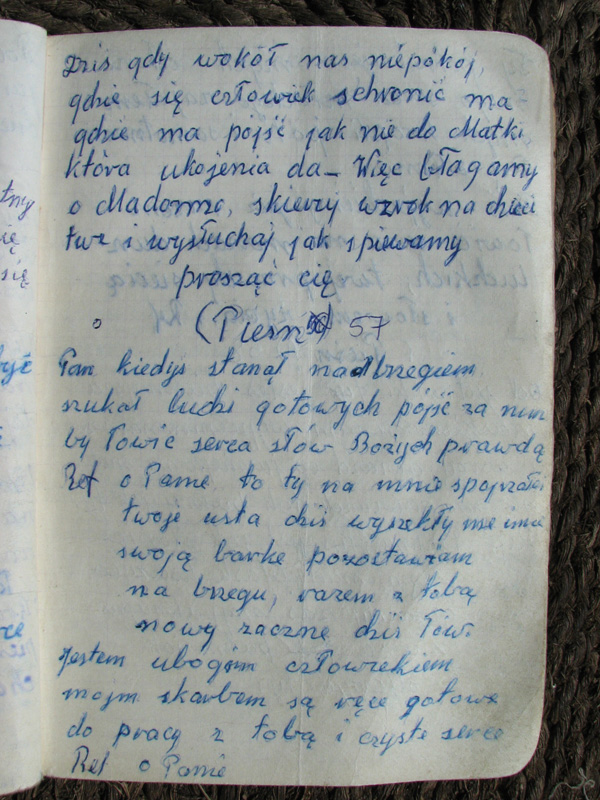 Dziś gdy wokół nas niepokój,
gdzie się człowiek schronić ma
gdzie ma pójść jak nie do Matki
która ukojenia da – Więc błagamy
o Madonno, skieruj wzrok na dzieci
twe i wysłuchaj jak śpiewamy
prosząc cię
(Pieśń) 57
Pan kiedyś stanął nad brzegiem
szukał ludzi gotowych pójść za nim
by łowić serca słów Bożych prawdą
Ref o Panie to ty na mnie spojrzałeś
twoje usta dziś wyrzekły me imię
swoją barkę pozostawiam
na brzegu, razem z tobą
nowy zacznę dziś łów.
Jestem ubogim człowiekiem
moim skarbem są ręce gotowe
do pracy z tobą i czyste serce
Ref o Panie
tmy
ię
się
być